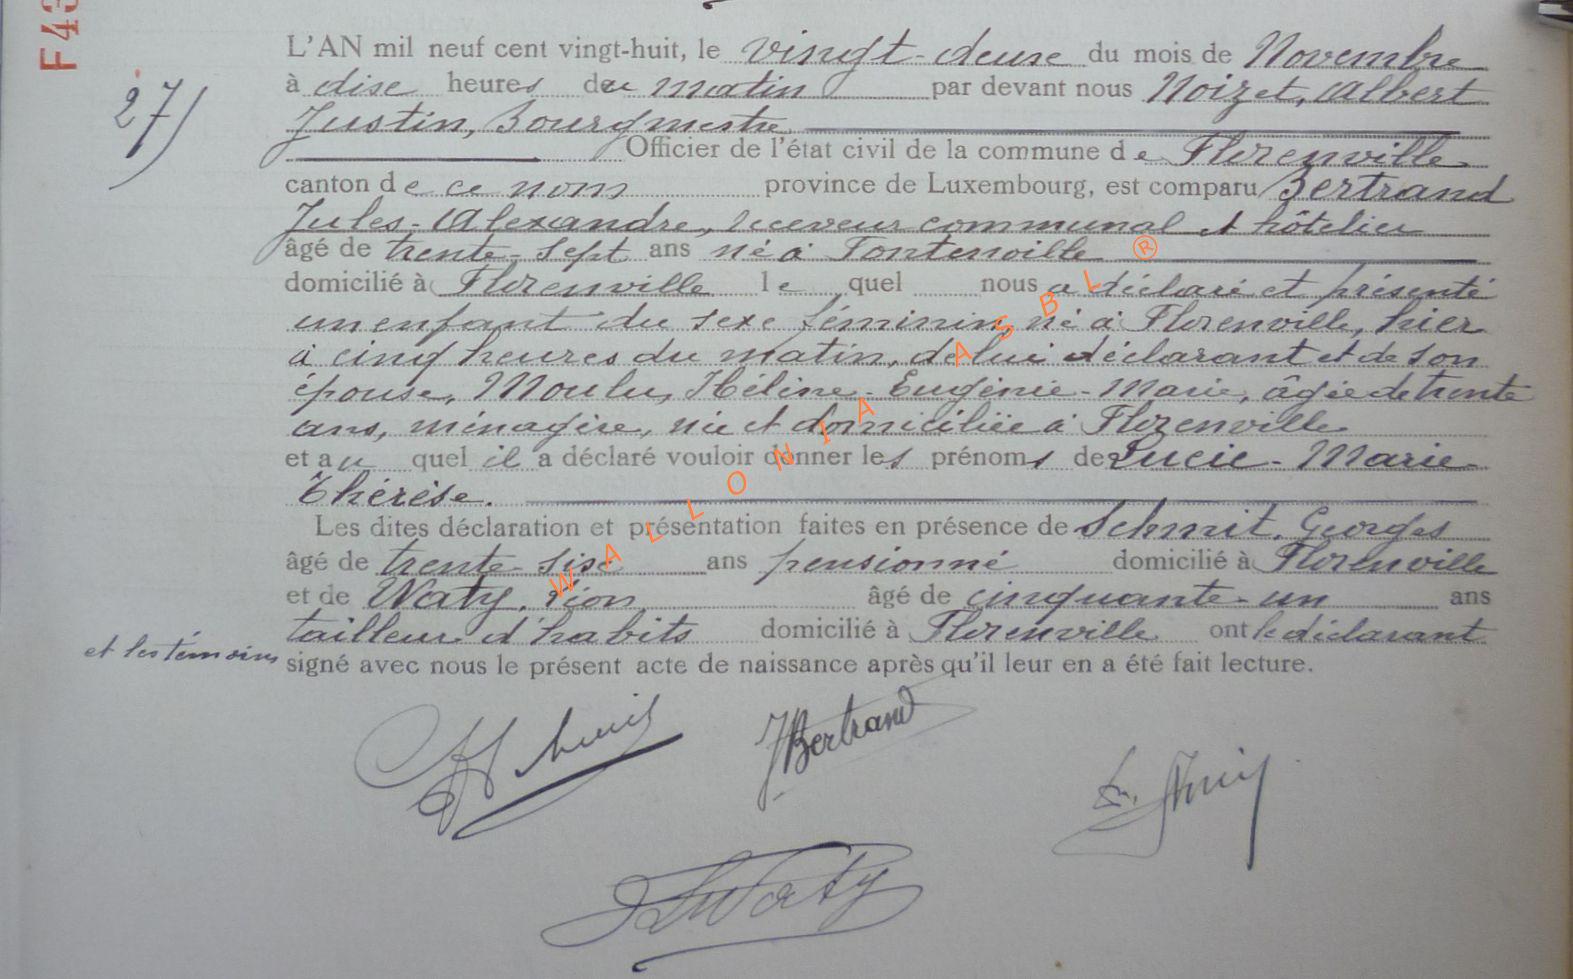 F43
27)
L'AN mil neuf cent vingt-huit, le vingt-deux du mois de Novembre
à dix heures du matin par devant nous Noizet, Albert
Justin, Bourgmestre
Officier de l'état civil de la commune de Florenville
canton de ce nom province de Luxembourg, est comparu Bertrand
Jules-Alexandre, receveur communal et hôtelier
âgé de trente-sept ans né à Fontenoille
domicilié à Florenville lequel nous a déclaré et présenté
un enfant du sexe féminin, né à Florenville, hier
à cinq heures du matin, de lui déclarant et de son
épouse, Moulu, Hélène-Eugénie-Marie, âgée de trente
ans, ménagère, née et domiciliée à Florenville
et au quel il a déclaré vouloir donner les prénoms de Lucie-Marie-
Thérèse.
Les dites déclaration et présentation faites en présence de Schmit, Georges
âgé de trente-six ans pensionné domicilié à Florenville
et de Waty, Léon, âgé de cinquante-un ans
tailleur d'habits domicilié à Florenville ont le déclarant
et les témoins
signé avec nous le présent acte de naissance après qu'il leur en a été fait lecture.
JBertrand
Waty
WALLONIA ASBL ®